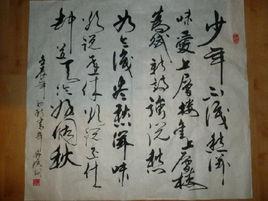 少年不識愁滋
味愛上層樓愛上層樓
為賦新詞強說愁
而今識盡愁滋味
欲說還休欲說還休
却道天涼好個秋